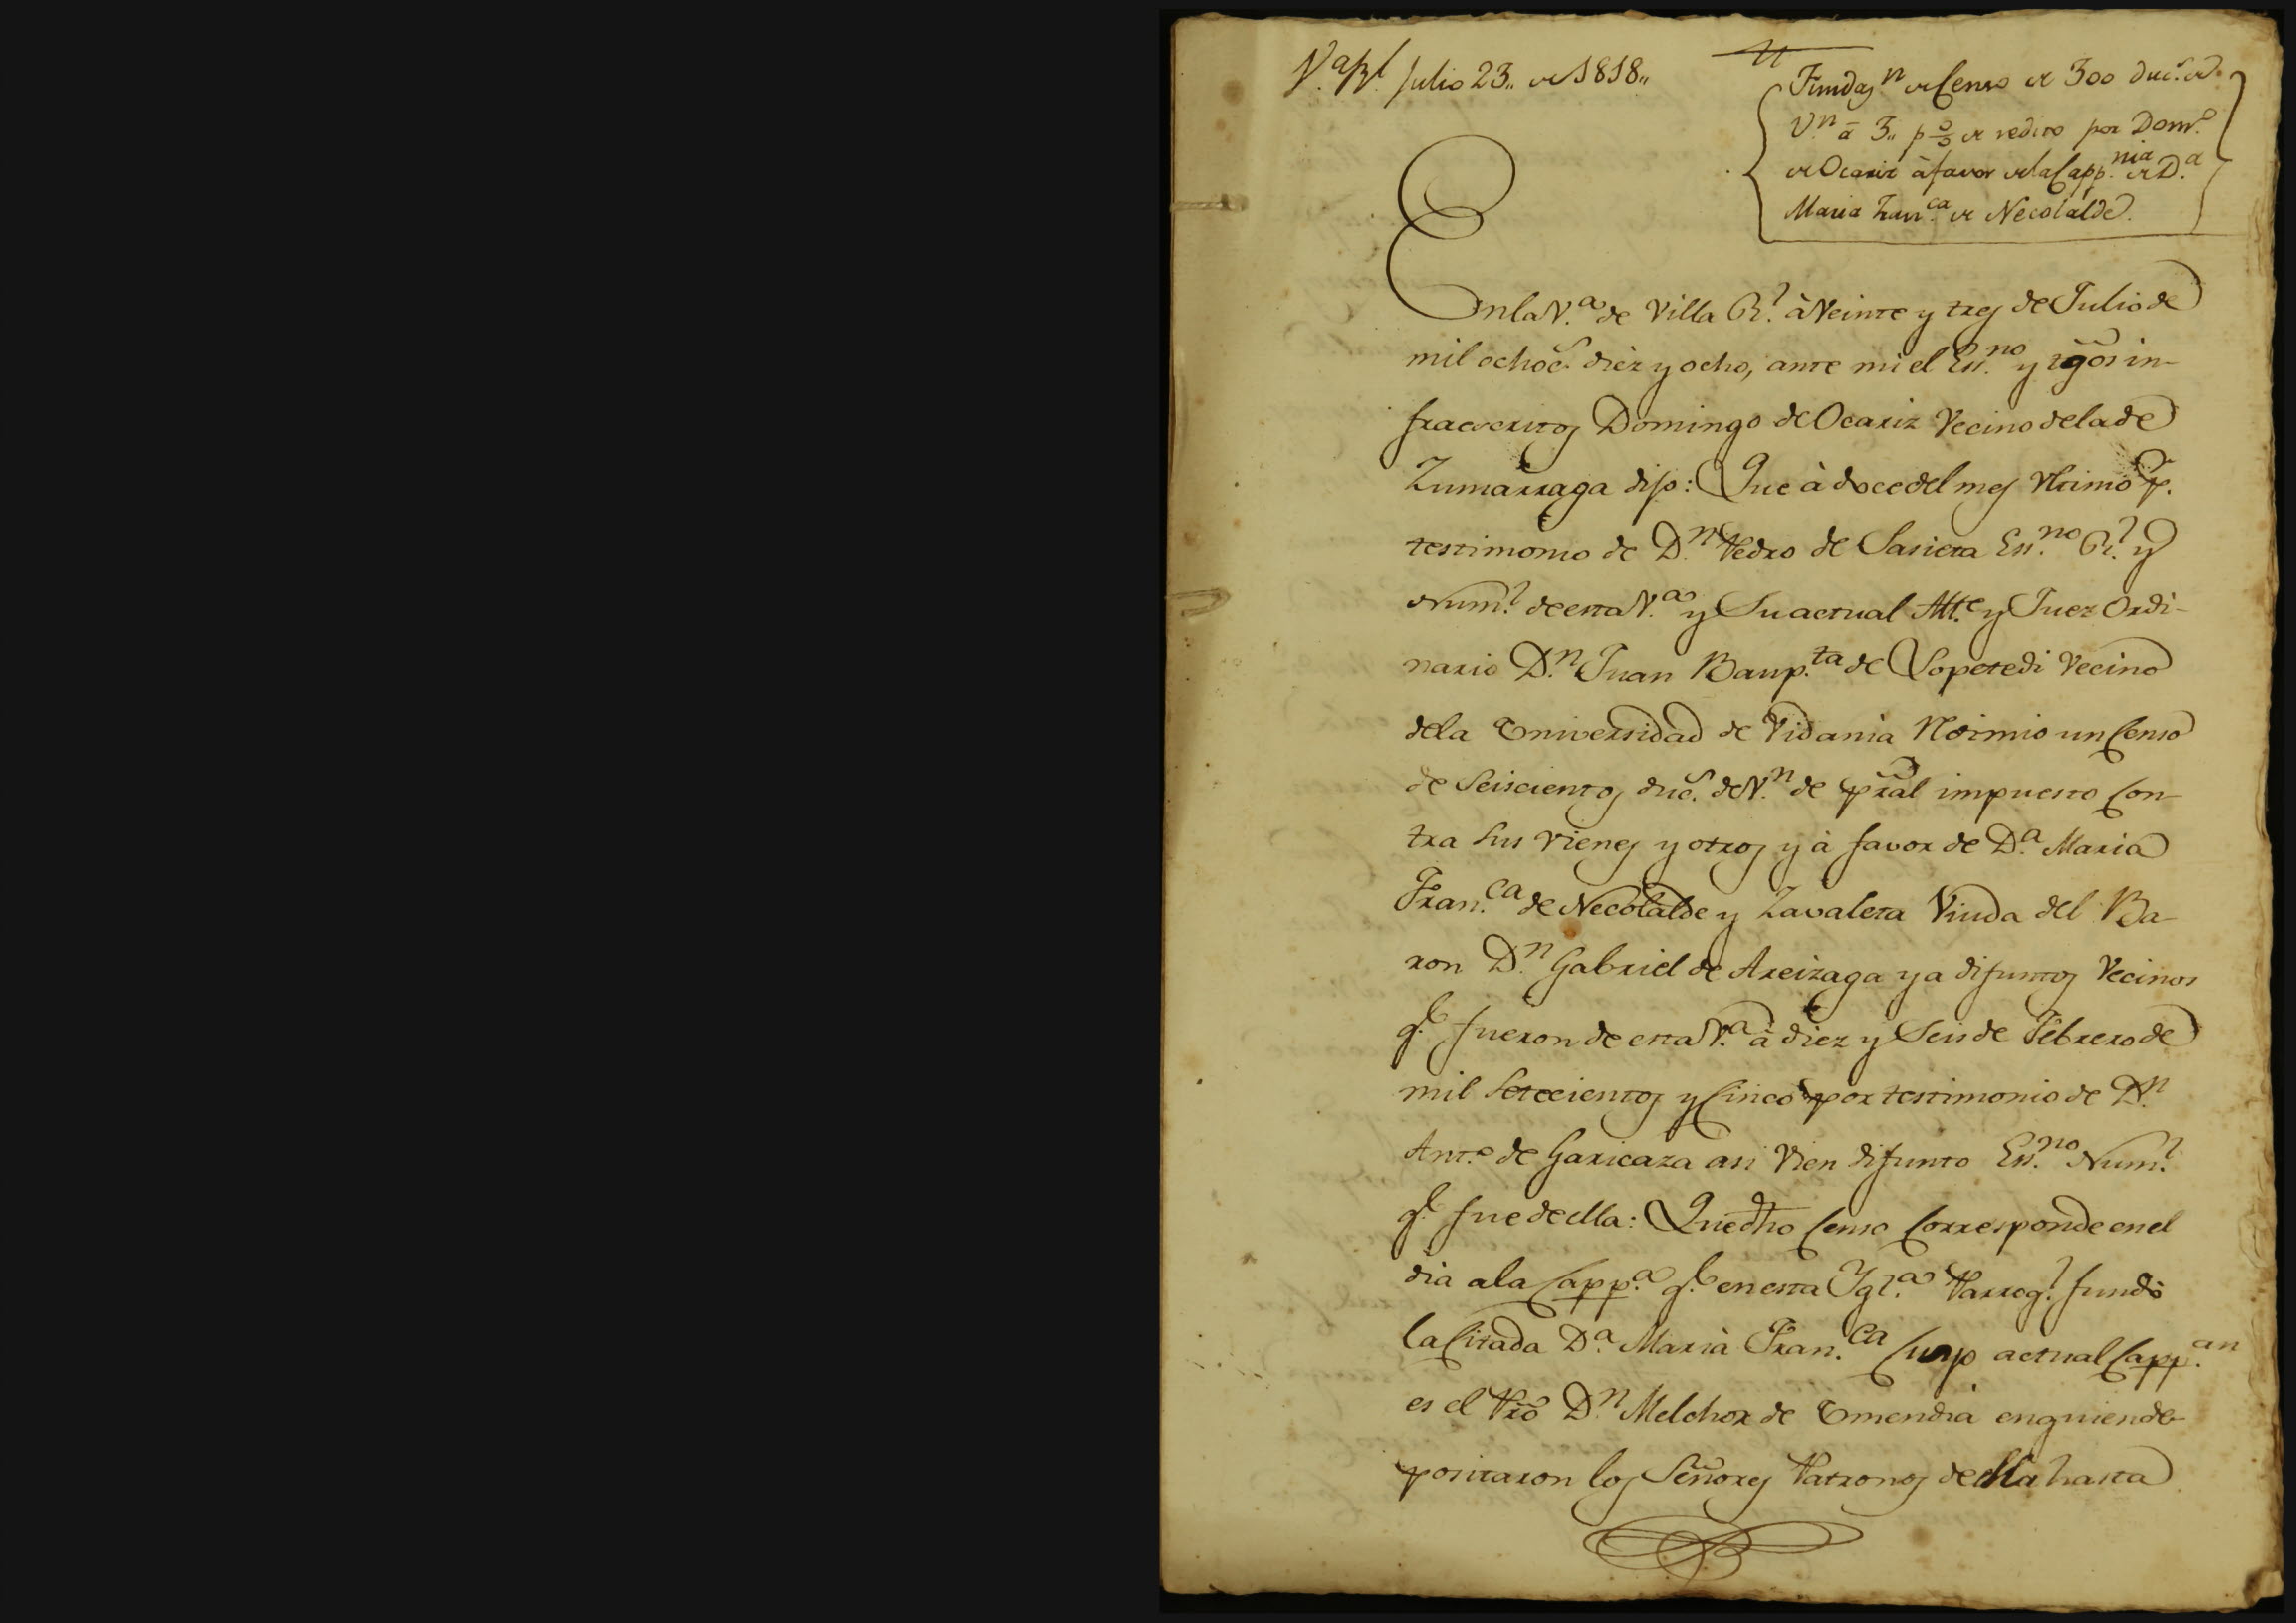 V.ª R.l Julio 23,, de 1818,,
Fundaz.n de Censo de 300 duc.s de
V.n â 3,, p % de redito por Dom.o
de Ocariz à favor de la Capp.nia de D.a
Maria Fran.ca de Necolalde.
En la V.a de Villa R.l à Veinte y tres de Julio de
mil ochoc.s diez y ocho, ante mi el Ess.no y tgõs in-
fraescritos Domingo de Ocariz Vecino de la de
Zumarraga dijo: Que à doce del mes Vltimo p.r
testimonio de D.n Pedro de Sasieta Ess.no R.l y
Num.l de esta V.a y Su actual Alt.e y Juez Ordi-
nario D.n Juan Baup.ta de Lopetedi Vecino
de la Universidad de Vidania Redimio un Censo
de Seiscientos duc.s de V.n de prãl impuesto Con-
tra Sus Vienes y otros y à favor de D.a Maria
Fran.ca de Necolalde y Zavaleta Viuda del Ba-
ron D.n Gabriel de Areizaga ya difuntos Vecinos
q.e fueron de esta V.a à diez y Seis de Febrero de
mil Setecientos y Cinco por testimonio de D.n
Ant.o de Garicaza asi Vien difunto Ess.no Num.l
q.e fue de ella: Que dho Censo Corresponde en el
dia a la Capp.a q.e en esta Ygl.a Parrog.l fundò
la Citada D.a Maria Fran.ca Cuyo actual Capp.an
es el Prõ D.n Melchor de Ymendia en quien de-
positaron los Señores Patronos de ella hasta